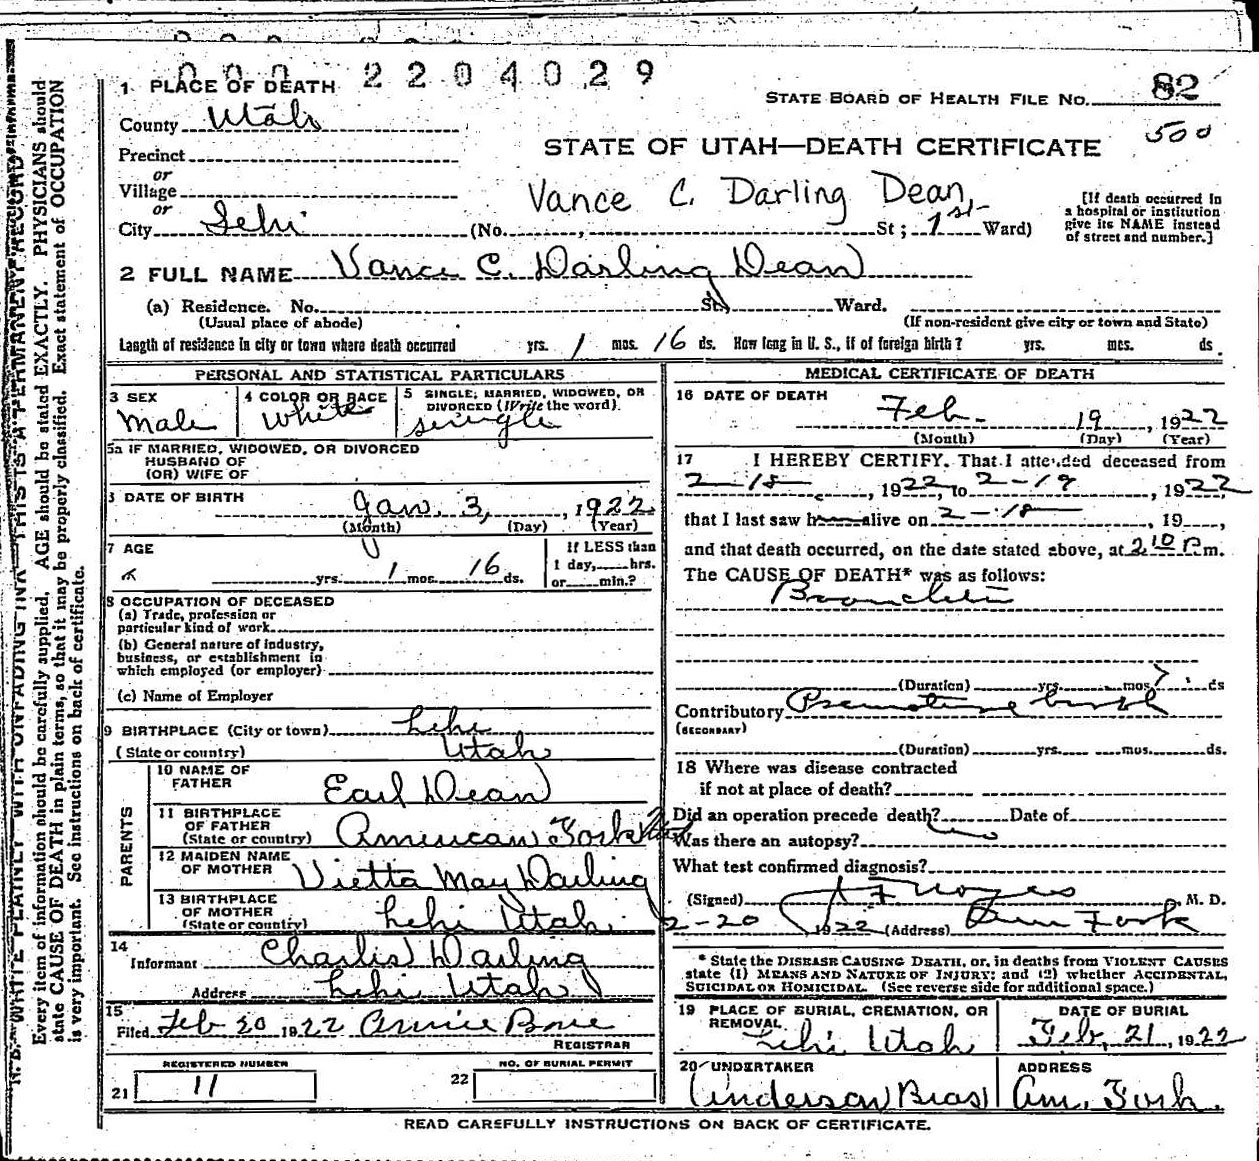 000 2204029
1 PLACE OF DEATH
STATE BOARD OF HEALTH FILE No. 82
County Utah
500
STATE OF UTAH—DEATH CERTIFICATE
Precinct
or
Village
Vance C. Darling Dean
[If death occurred in
a hospital or institution
give its NAME instead
of street and number.]
or
City Lehi (No. , St; 1st Ward)
2 FULL NAME Vance C. Darling Dean
(a) Residence. No. St., Ward.
(Usual place of abode) (If non-resident give city or town and State)
Length of residence in city or town where death occurred yrs. 1 mos. 16 ds. How long in U. S., if of foreign birth? yrs. mos. ds.
PERSONAL AND STATISTICAL PARTICULARS
3 SEX 4 COLOR OR RACE 5 SINGLE, MARRIED, WIDOWED, OR
DIVORCED (Write the word).
Male White single
5a IF MARRIED, WIDOWED, OR DIVORCED
HUSBAND OF
(OR) WIFE OF
6 DATE OF BIRTH
Jan. 3, , 1922
(Month) (Day) (Year)
7 AGE If LESS than
1 day, hrs.
yrs. 1 mos. 16 ds. or min.?
8 OCCUPATION OF DECEASED
(a) Trade, profession or
particular kind of work
(b) General nature of industry,
business, or establishment in
which employed (or employer)
(c) Name of Employer
9 BIRTHPLACE (City or town) Lehi
(State or country) Utah
PARENTS
10 NAME OF
FATHER Earl Dean
11 BIRTHPLACE
OF FATHER
(State or country) American Fork Utah
12 MAIDEN NAME
OF MOTHER Vietta May Darling
13 BIRTHPLACE
OF MOTHER
(State or country) Lehi Utah
14
Informant Charlis Darling
Address Lehi Utah
15
Filed Feb 20 1922 Annie
REGISTRAR
REGISTERED NUMBER NO. OF BURIAL PERMIT
21 11 22
MEDICAL CERTIFICATE OF DEATH
16 DATE OF DEATH
Feb. 19 , 1922
(Month) (Day) (Year)
17 I HEREBY CERTIFY, That I attended deceased from
2-18 , 1922, to 2-19 , 1922
that I last saw h alive on 2-18 , 19 ,
and that death occurred, on the date stated above, at 2 10 P.m.
The CAUSE OF DEATH* was as follows:
Bronchitis
(Duration) yrs. mos. 7 ds
Contributory Premature birth
(SECONDARY)
(Duration) yrs. mos. ds.
18 Where was disease contracted
if not at place of death?
Did an operation precede death? no Date of
Was there an autopsy?
What test confirmed diagnosis?
(Signed) Noyes M. D.
2-20 1922 (Address) Am Fork
* State the DISEASE CAUSING DEATH, or, in deaths from VIOLENT CAUSES
state (1) MEANS AND NATURE OF INJURY; and (2) whether ACCIDENTAL,
SUICIDAL OR HOMICIDAL. (See reverse side for additional space.)
19 PLACE OF BURIAL, CREMATION, OR
REMOVAL DATE OF BURIAL
Lehi Utah Feb, 21, 1922
20 UNDERTAKER ADDRESS
Anderson Bros Am. Fork.
READ CAREFULLY INSTRUCTIONS ON BACK OF CERTIFICATE.
N. B.—WRITE PLAINLY WITH UNFADING INK—THIS IS A PERMANENT RECORD
Every item of information should be carefully supplied. AGE should be stated EXACTLY. PHYSICIANS should
state CAUSE OF DEATH in plain terms, so that it may be properly classified. Exact statement of OCCUPATION
is very important. See instructions on back of certificate.